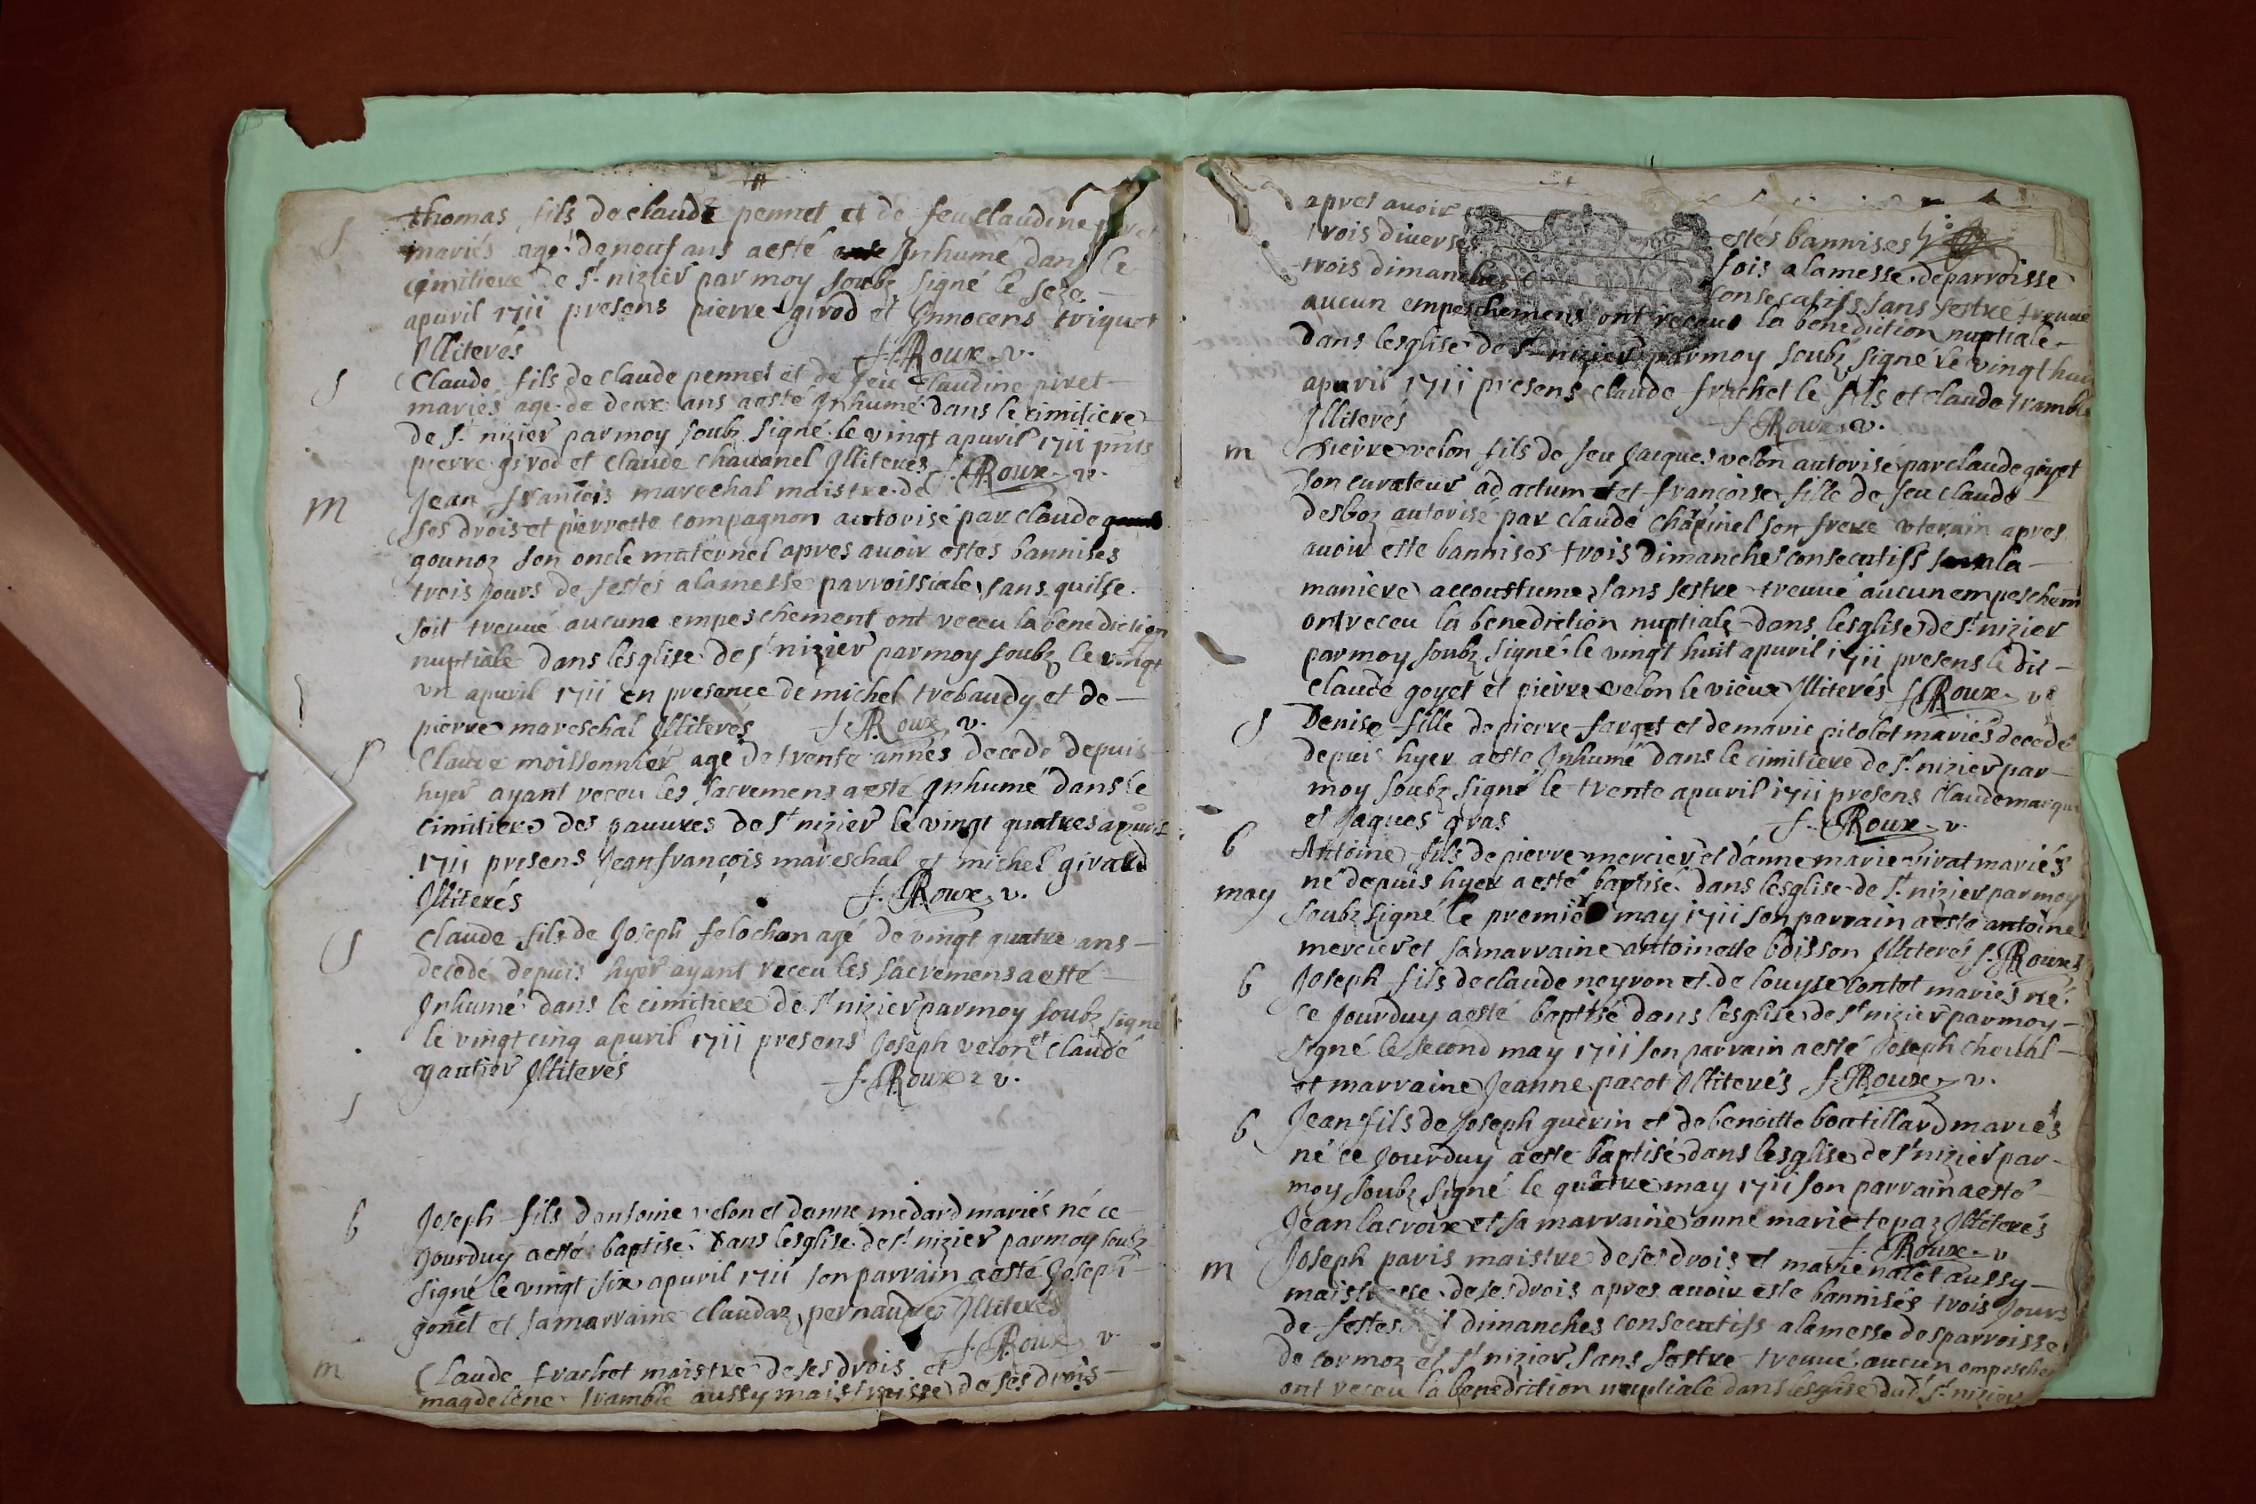 S
thomas fils de claude pennet et de feu claudine
mariés agé de neuf ans a esté Inhumé dans le
cimitiere de St nizier par moy soubz signé le seze
apuril 1711 presens pierre girod et Innocens triquet
Illiterés f. Roux v.
S
Claude fils de claude pennet et de feu claudine piret
mariés age de deux ans a esté Inhumé dans le cimitiere
de St nizier par moy soubz signé le vingt apuril 1711 pnts
pierre girod et Claude Chavanel Illiterés f. Roux v.
m
Jean françois marechal maistre de
ses drois et pierrette compagnon autorisé par claude
gounoz son oncle maternel apres auoir estés bannises
trois Jours de festes a la messe parroissiale sans quil se
soit treuué aucune empeschement ont receu la benediction
nuptiale dans lesglise de St nizier par moy soubz le vingt
vn apuril 1711 en presence de michel trebaudy et de
pierre mareschal Illiterés f. Roux v.
S
Claude moissonnier agé de trente annés decedé depuis
hyer ayant receu les sacremens a esté Inhumé dans le
cimitiere des pauures de St nizier le vingt quatre apuril
1711 presens Jean françois mareschal et michel girard
Illiterés f. Roux v.
S
Claude fils de Joseph felochon agé de vingt quatre ans
decedé depuis hyer ayant receu les sacremens a esté
Inhumé dans le cimitiere de St nizier par moy soubz signé
le vingt cinq apuril 1711 presens Joseph velon et claude
gautier Illiterés f. Roux v.
S
b
Joseph fils dantoine velon et danne médard mariés né ce
Jourduy a esté baptisé dans lesglise de St nizier par moy soubz
signé le vingt six apuril 1711 son parrain a esté Joseph
gonet et sa marraine claudaz pernaudz Illiterés
f. Roux v.
m
Claude frachet maistre de ses drois et
magdelene tramble aussy maistraisse de ses drois
apres auoir estés bannises
trois diverses fois a la messe de parroisse
trois dimanches consecutifs sans sestre treuué
aucun empeschemens ont receu la benediction nuptiale
dans lesglise de St nizier par moy soubz signé le vingt huit
apuril 1711 presens claude frachet le fils et claude tramble
Illiterés f. Roux v.
m
Pierre velon fils de feu Jacques velon autorisé par claude goyet
son curateur ad actum et françoise fille de feu claude
desboz autorisé par claude Charinel son frere vterain apres
auoir esté bannises trois dimanches consecutifs a la
maniere accoustume sans sestre treuué aucun empeschem
ont receu la benediction nuptiale dans lesglise de St nizier
par moy soubz signé le vingt huit apuril 1711 presens le dit
claude goyet et pierre velon le vieux Illiterés f. Roux v.
S
Denise fille de pierre farget et de marie pitolet mariés decedé
depuis hyer a esté Inhumé dans le cimitiere de St nizier par
moy soubz signé le trente apuril 1711 presens Claude
et Jaques gras f. Roux v.
b
Antoine fils de pierre mercier et d'anne marie virat mariés
né depuis hyer a esté baptisé dans lesglise de St nizier par moy
may
soubz signé le premie may 1711 son parrain a esté antoine
mercier et sa marraine antoinette boisson Illiterés f. Roux
b
Joseph fils de claude neyron et de louyse contet mariés né
ce Jourduy a esté baptisé dans lesglise de St nizier par moy
signé le second may 1711 son parrain a esté Joseph cheual
et marraine Jeanne pacot Illiterés f. Roux v.
b
Jean fils de Joseph guerin et de benoitte boutillard mariés
né ce Jourduy a esté baptisé dans lesglise de St nizier par
moy soubz signé le quatre may 1711 son parrain a esté
Jean lacroix et sa marraine anne marie tepaz Illiterés
f. Roux v
m
Joseph paris maistre de ses drois et marie nalet aussy
maistresse de ses drois apres auoir esté bannisés trois Jours
de festes dimanches consecutifs a la messe des parroisses
de cormoz et St nizier sans sestre treuué aucun empeschem
ont receu la benediction nuptiale dans lesglise dud St nizier